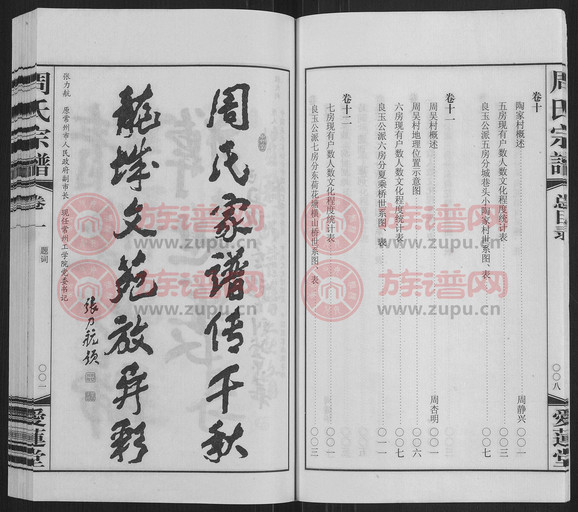 周氏宗譜
總目录
〇〇八
愛蓮堂
卷十
陶家村概述 周静兴 〇〇一
五房现有户数人数文化程度统计表 〇〇三
良玉公派五房分城巷头小陶家村世系图、表 〇〇七
卷十一
周吴村概述 周杏明 〇〇一
周吴村地理位置示意图 〇〇六
六房现有户数人数文化程度统计表 〇〇七
良玉公派六房分夏乘桥世系图、表
卷十二
七房现有户数人数文化程度统计表 〇〇一
良玉公派七房分东荷花塘横山桥世系图、表 〇〇三
周氏家譜传千秋
龍城文苑放异彩
張乃航題
张力航 原常州市人民政府副市长 现任常州工学院党委书记
周氏宗譜
卷一
题词
〇〇一
愛蓮堂
族谱网
www.zupu.cn
族谱网
www.zupu.cn
族谱网
www.zupu.cn
族谱网
www.zupu.cn